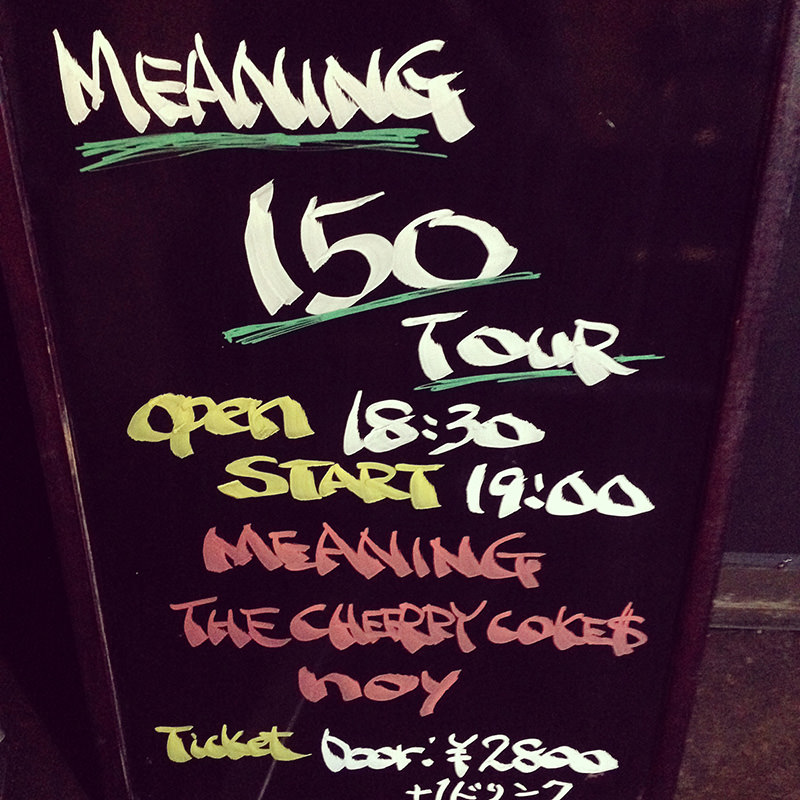 MEANING
150
TOUR
open 18:30
START 19:00
MEANING
THE CHERRY COKE$
noy
Ticket Door: ¥2800
+1ドリンク